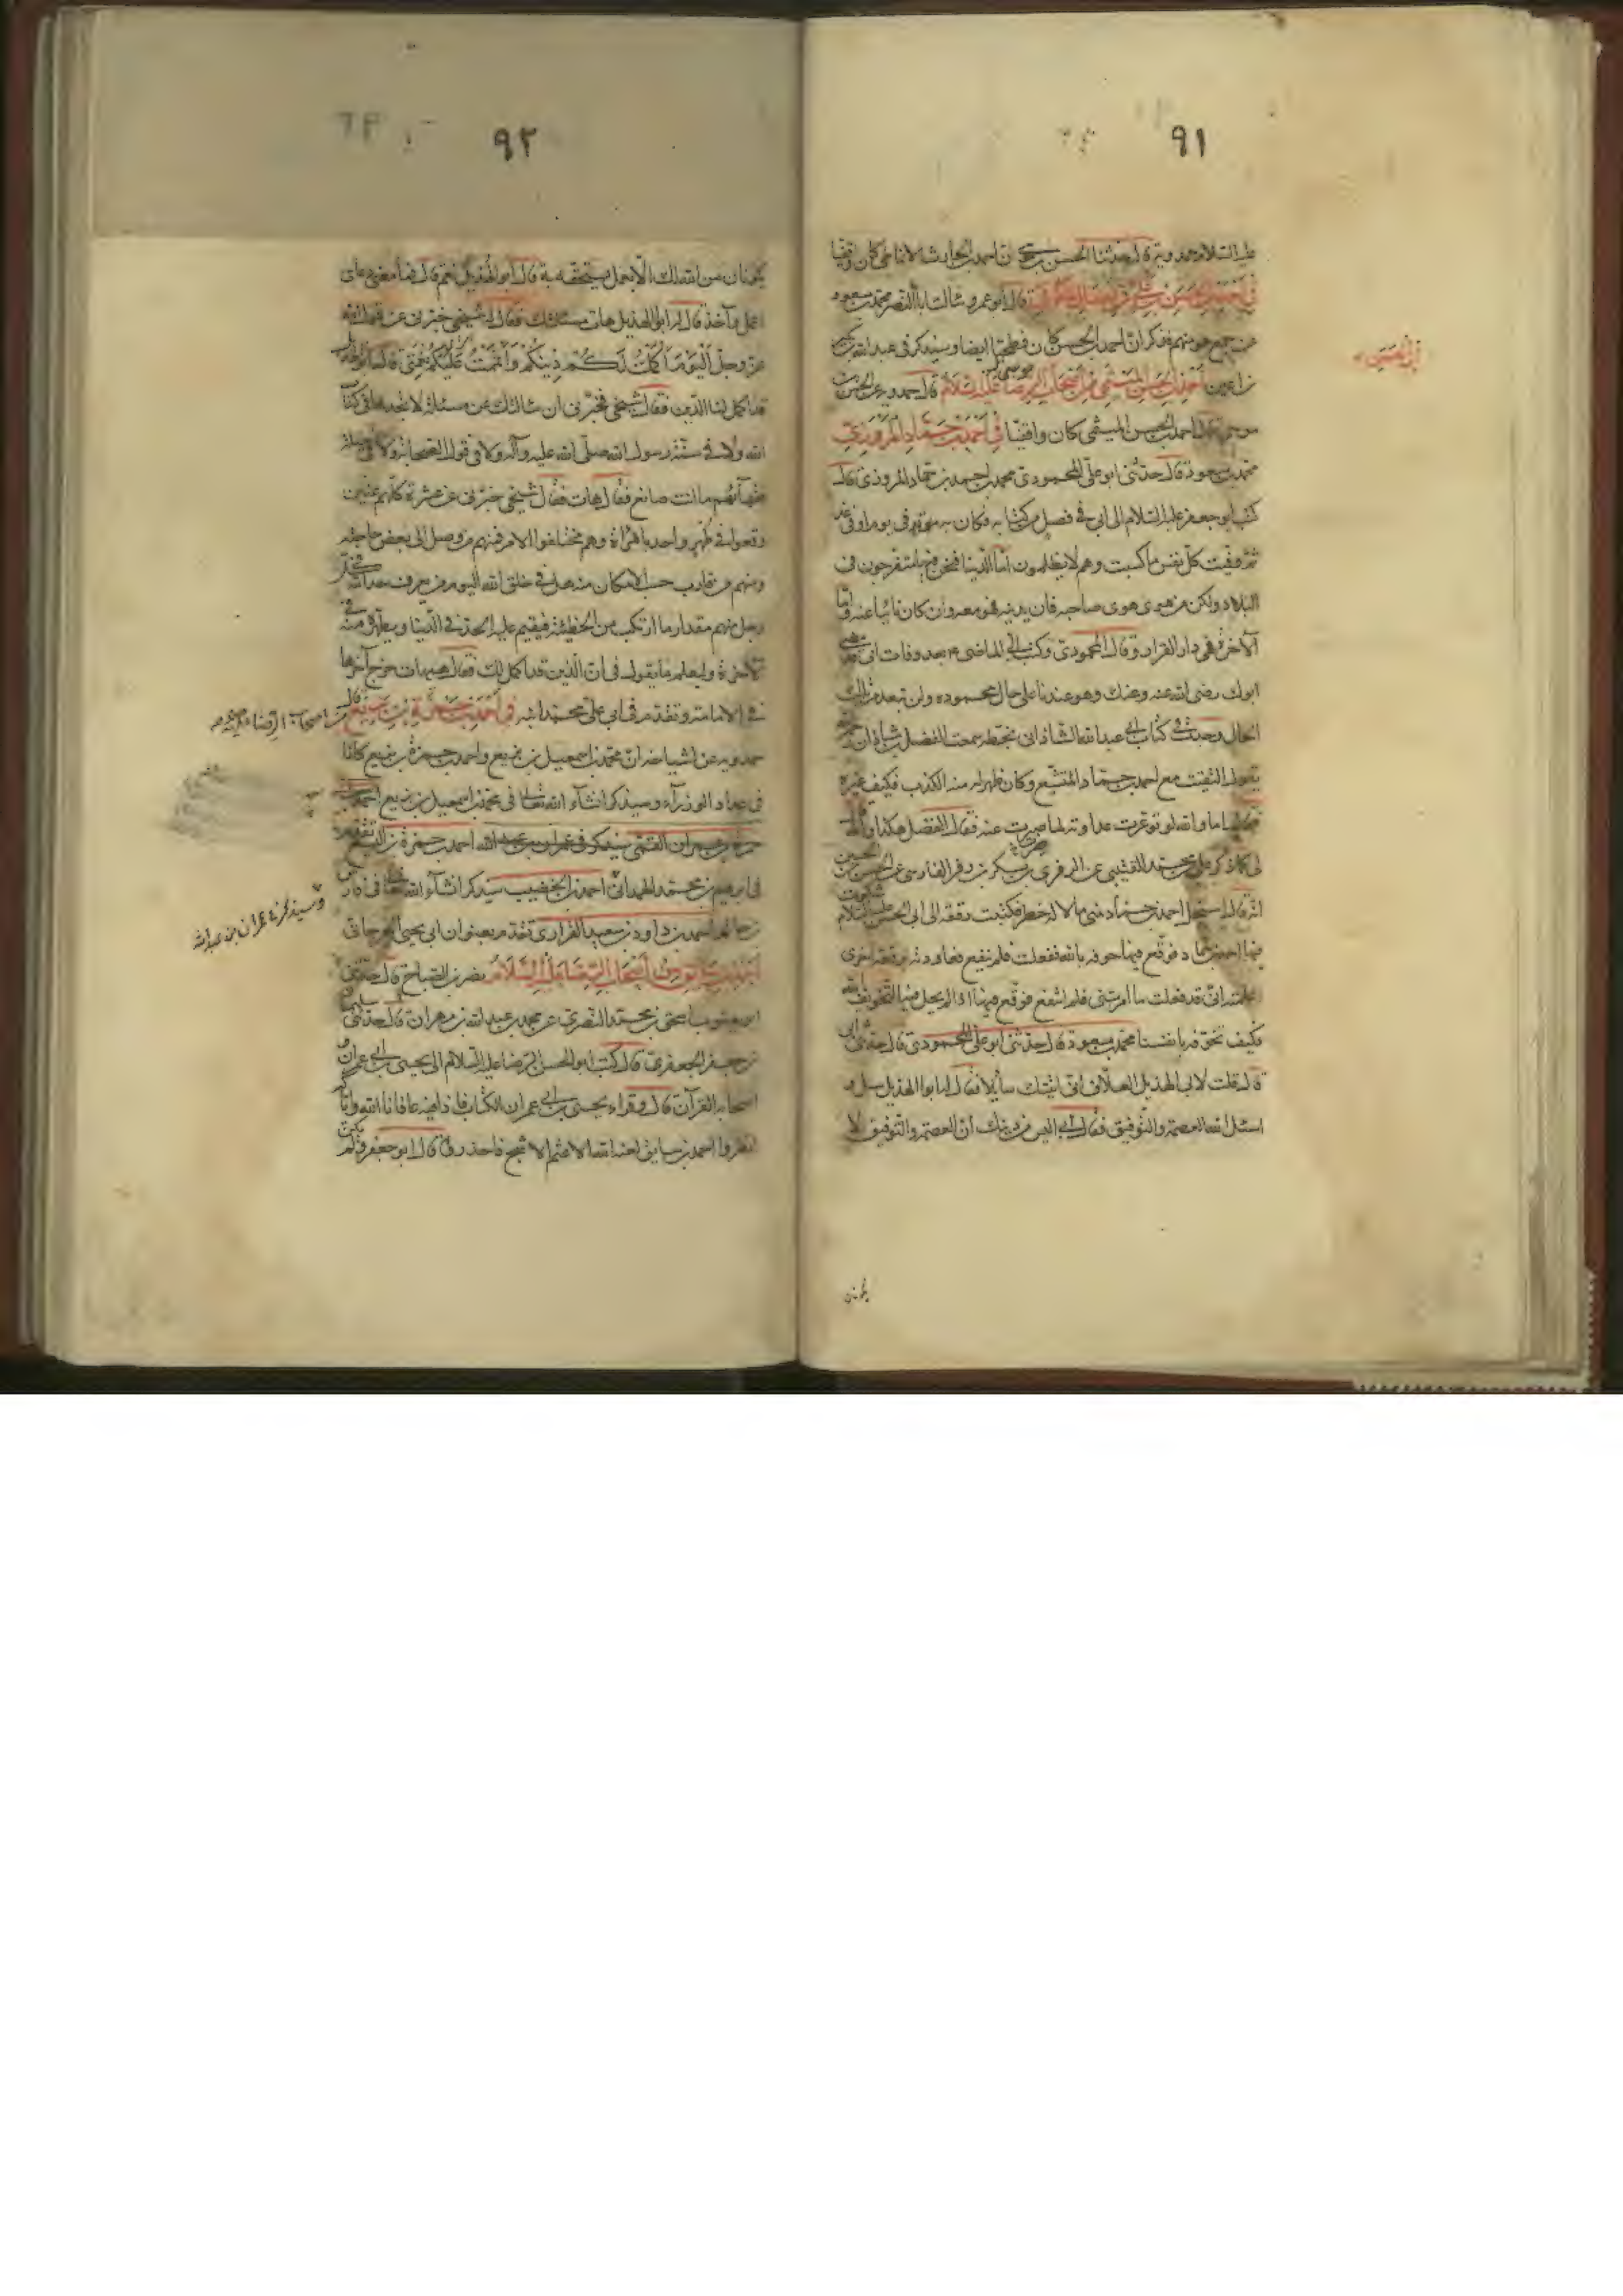 ٩١
عليه السلام حمدويه قال حدثنا الحسن بن موسى ان احمد بن الحارث الانماطى كان واقفيا
فى احمد بن الحسن بن على بن فضال الفطحى قال ابو عمرو سالت ابا النضر محمد بن مسعود
عن جميع هو منهم فذكر ان احمد بن الحسن كان فطحيا ايضا وسيذكر فى عبد الله بن بكير
بن اعين احمد بن الحسن الميثمى من اصحاب الرضا عليه السلام قال حمدويه عن الحسن بن
موسى قال احمد بن الحسن الميثمى كان واقفيا فى احمد بن حماد المروزى
محمد بن مسعود قال حدثنى ابو على المحمودى محمد بن احمد بن حماد المروزى قال
كتب ابو جعفر عليه السلام الى ابى فى فصل من كتابه فكان قد فى يوم او فى غد
ثم وفيت كل نفس ما كسبت وهم لا يظلمون اما الدنيا فنحن فيها متفرجون فى
البلاد ولكن من هوى هوى صاحبه فان بدينه فهو معه وان كان نائيا عنه واما
الآخرة فهى دار القرار وقال المحمودى وكتب الى الماضى بعد وفات ابى قد مضى
ابوك رضى الله عنه وعنك وهو عندنا على حال محموده ولن تبعد من تلك
الحال وجدت فى كتاب ابى عبد الله الشاذانى بخطه سمعت الفضل بن شاذان
يقول التقيت مع احمد بن حماد المتشيع وكان ظهر له منه الكذب فكيف غيره
فقال اما والله لو تو غرت عداوته لما صبرت عنه فقال الفضل هكذا والله قال
لى كما ذكر على بن محمد القتيبى عن الزفرى بكر بن زفر الفارسى عن الحسن بن الحسين
انه قال استحل احمد بن حماد منى مالا له خطر فكتبت رقعة الى ابى الحسن عليه السلام شكوت
فيها احمد بن حماد فوقع فيها خوفه بالله ففعلت فلم ينفع فعاودته برقعة اخرى
اعلمته انى قد فعلت ما امرتنى فلم انتفع فوقع فيها اذا لم يحل فيه التخويف بالله
فكيف تخوفه بانفسنا محمد بن مسعود قال حدثنى ابو على المحمودى قال حدثنى ابى
قال قلت لابى الهذيل العلاف انى اتيتك سائلا فقال ابو الهذيل سل و
اسئل الله العصمة والتوفيق فقال ابى اليس من دينك ان العصمة والتوفيق لا
يكونان
٩٢
يكونان من الله لك الا بعمل يستحقه به قال ابو الهذيل نعم قال فما معنى دعائى
اعمل وآخذ قال له ابو الهذيل هات مسئلتك فقال له شيخى خبرنى عن قول الله
عز وجل اليوم اكملت لكم دينكم واتممت عليكم نعمتى قال ابو الهذيل
قد اكمل لنا الدين فقال شيخى فخبرنى ان سالتك عن مسئلة لا تجدها فى كتاب
الله ولا فى سنة رسول الله صلى الله عليه وآله ولا فى قول الصحابة ولا فى حيلة
فقهائهم ما انت صانع فقال هات فقال شيخى خبرنى عن عشرة كلهم عنين
وقعوا فى طهر واحد بامرأة وهم مختلفوا الامر فمنهم من وصل الى بعض حاجته
ومنهم من قارب حسب الامكان منه هل فى خلق الله اليوم من يعرف حد الله فى كل
رجل منهم مقدار ما ارتكب من الخطيئة فيقيم عليه الحد فى الدنيا ويطهره منه فى
الآخرة وليعلم ما يقول فى ان الدين قد اكمل لك فقال هيهات خرج آخرها
فى الامامة وتقدم فى ابى على محمد بن احمد فى احمد بن حمزة بن بزيع قال
من اصحاب الرضا
حمدويه عن اشياخه ان محمد بن اسمعيل بن بزيع واحمد بن حمزة بن بزيع كانا
فى عداد الوزرآء وسيذكر انشآء الله تعالى فى محمد بن اسمعيل بن بزيع احمد بن
حمزة بن عمران القمى سيذكر فى عمران بن عبد الله احمد بن حمزة بن اليسع تقدم
وسيذكر فى عمران بن عبد الله
فى ابرهيم بن محمد الهمدانى احمد بن الخضيب سيذكر انشآء الله تعالى فى فارس
بن حاتم احمد بن داود بن سعيد الفزارى تقدم بعنوان ابى يحيى الجرجانى
احمد بن سابق من اصحاب الرضا عليه السلام نصر بن الصباح قال حدثنى
ابو يعقوب اسحق بن محمد البصرى عن محمد بن عبد الله بن مهران قال حدثنى سليمان
بن جعفر الجعفرى قال كتب ابو الحسن الرضا عليه السلام الى يحيى بن ابى عمران و
اصحابه القرآن قال وقراء يحيى بن ابى عمران الكتاب فاذا فيه عافانا الله واياكم
انظروا احمد بن سابق لعنه الله الاعثم الاشج فاحذروه قال ابو جعفر ولم يكن